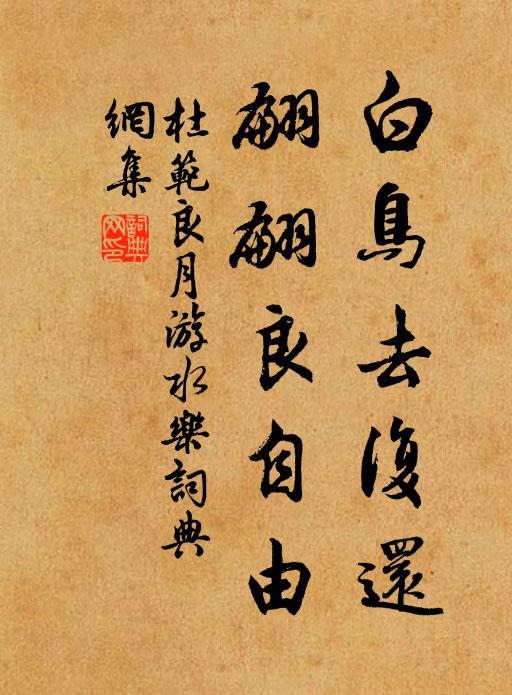 白鳥去復還
翩翩良自由
杜範良月游水樂詞典
網集
詞典
网印